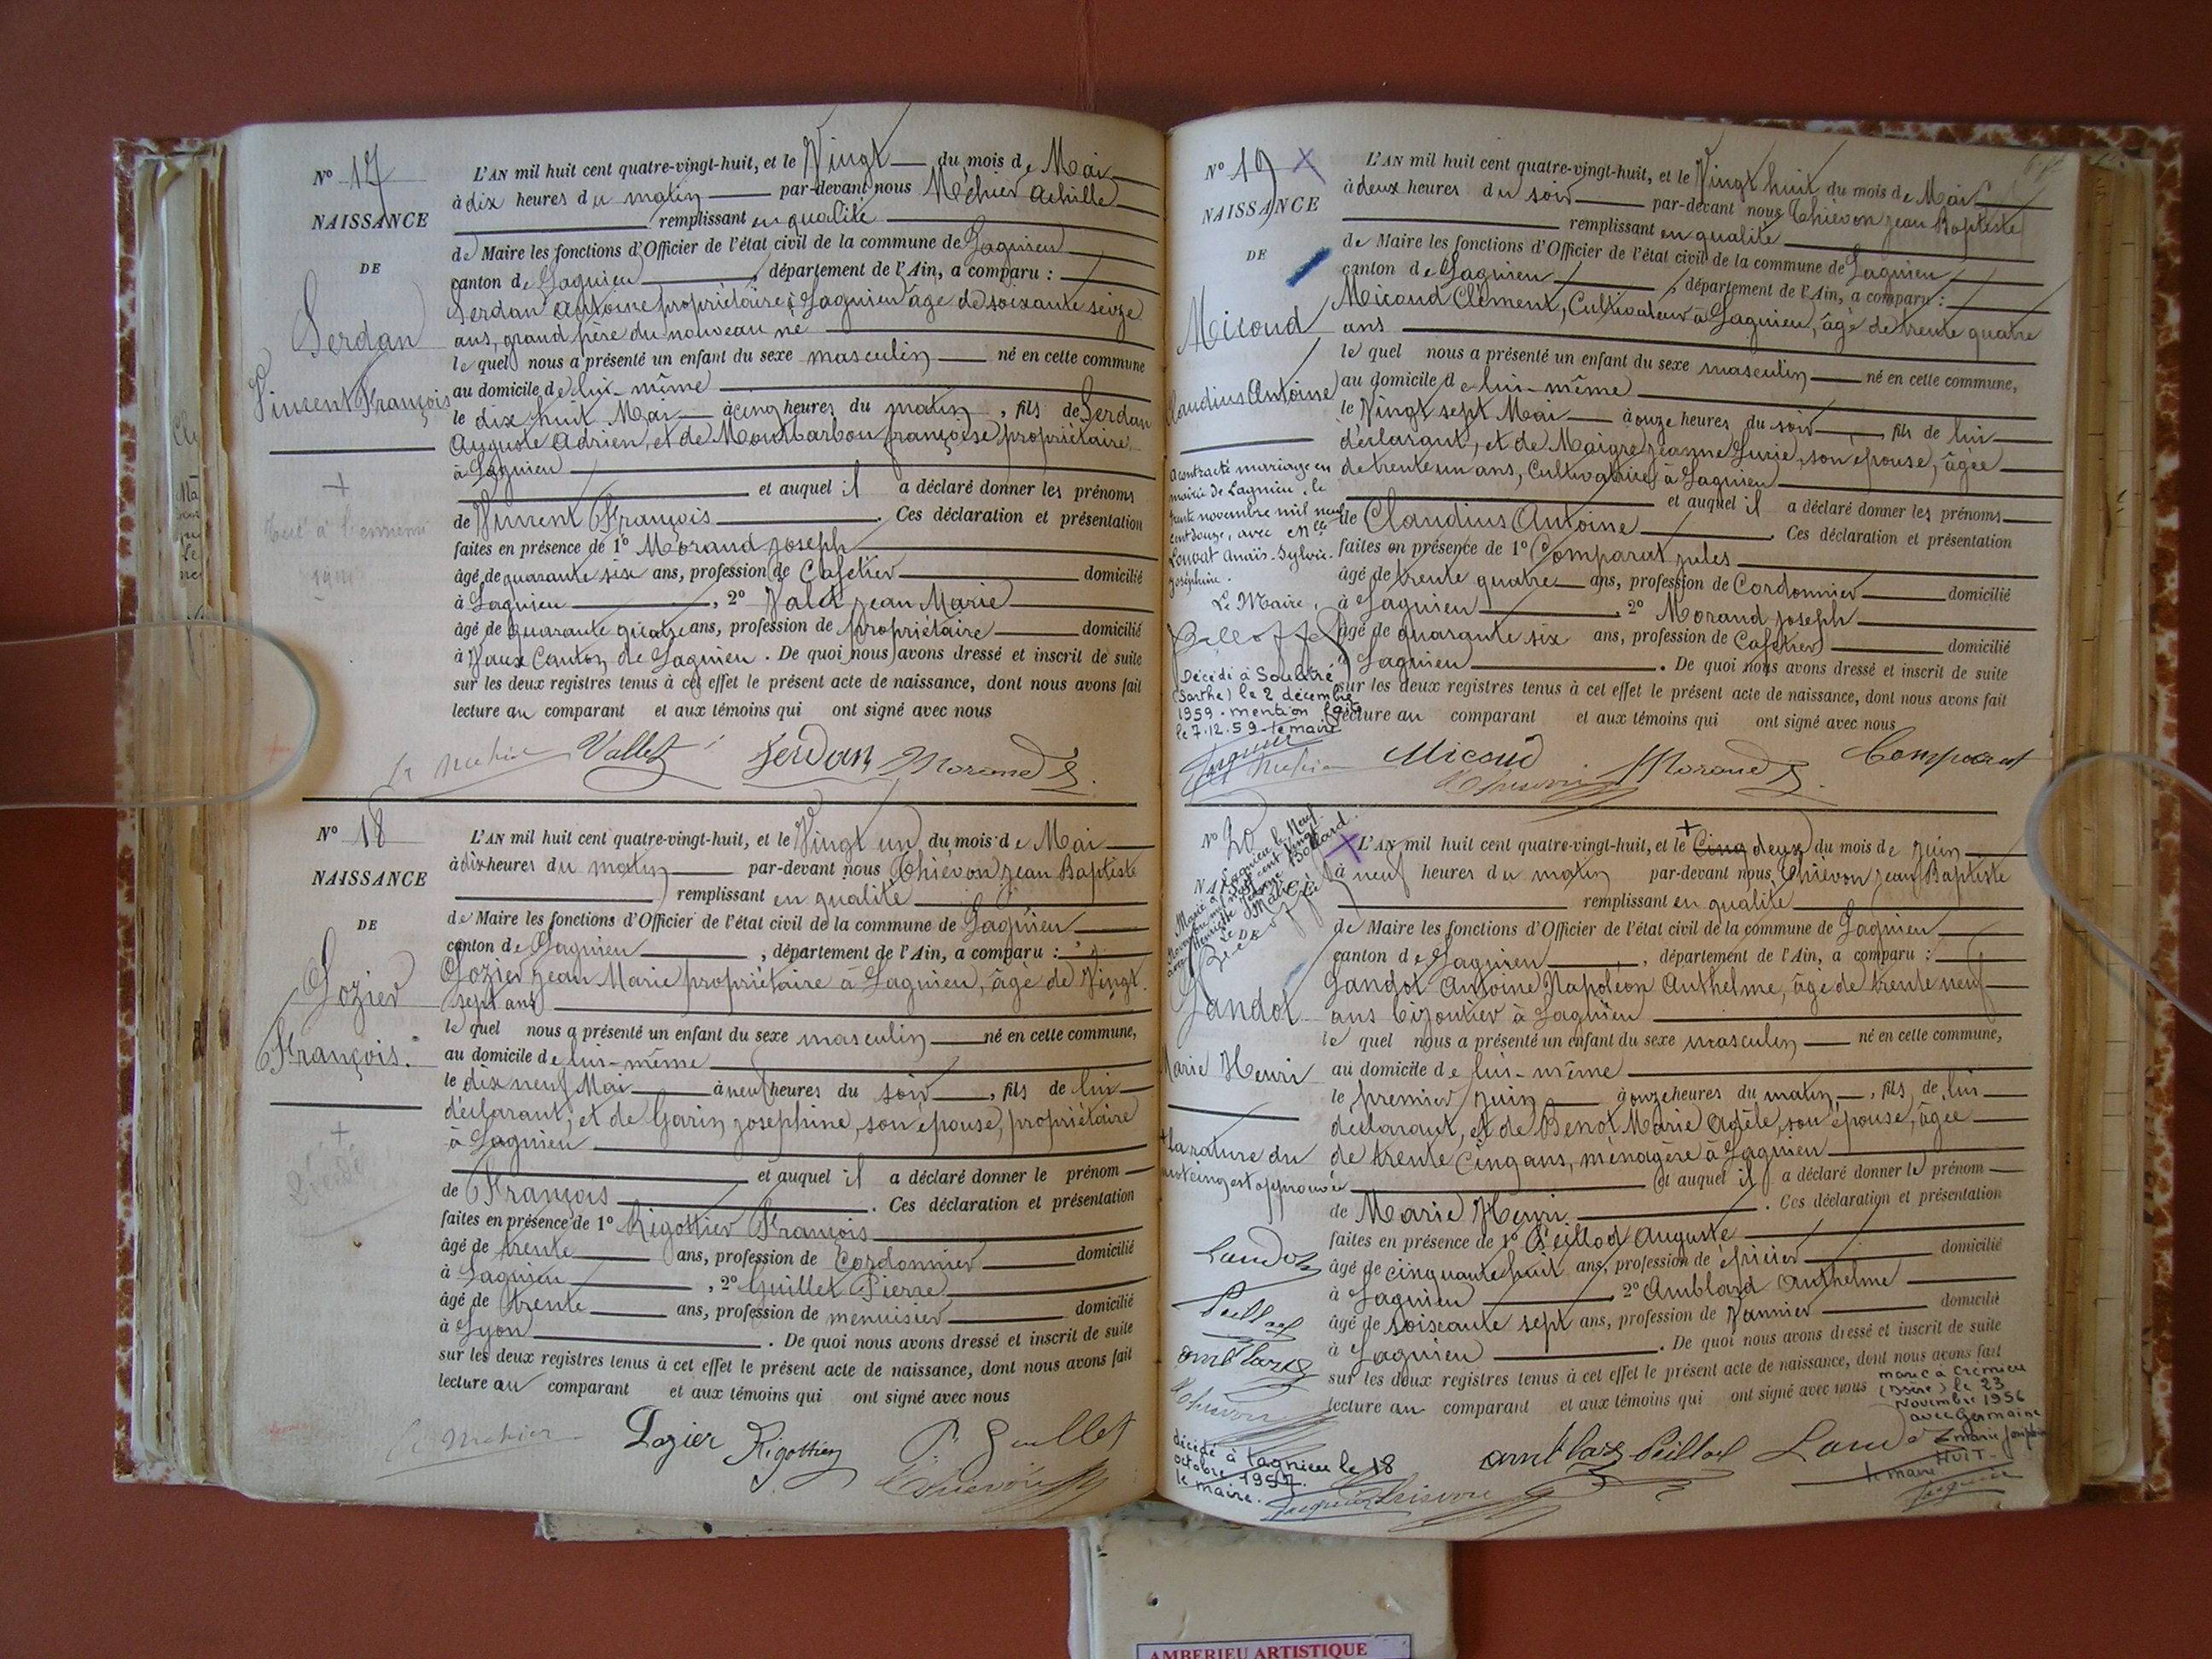 N° 17
NAISSANCE
DE
Serdan
Vincent François
+
Tué à l'ennemi
L'AN mil huit cent quatre-vingt-huit, et le Vingt du mois de Mai
à dix heures du matin par-devant nous Méhier Achille
remplissant en qualité
de Maire les fonctions d'Officier de l'état civil de la commune de Lagnieu
canton de Lagnieu, département de l'Ain, a comparu :
Serdan Antoine propriétaire à Lagnieu âgé de soixante seize
ans, grand père du nouveau né
le quel nous a présenté un enfant du sexe masculin né en cette commune
au domicile de lui-même
le dix huit Mai à cinq heures du matin, fils de Serdan
Auguste Adrien, et de Montbarbon françoise, propriétaire
à Lagnieu
et auquel il a déclaré donner les prénoms
de Vincent François. Ces déclaration et présentation
faites en présence de 1° Morand Joseph
âgé de quarante six ans, profession de Cafetier domicilié
à Lagnieu, 2° Jean Marie
âgé de quarante quatre ans, profession de propriétaire domicilié
à Vaux Canton de Lagnieu. De quoi nous avons dressé et inscrit de suite
sur les deux registres tenus à cet effet le présent acte de naissance, dont nous avons fait
lecture au comparant et aux témoins qui ont signé avec nous
Vallet Serdan Morand J.
N° 18
NAISSANCE
DE
Lozier
François.
+
Décédé
L'AN mil huit cent quatre-vingt-huit, et le Vingt un du mois de Mai
à dix heures du matin par-devant nous Thiévon Jean Baptiste
remplissant en qualité
de Maire les fonctions d'Officier de l'état civil de la commune de Lagnieu
canton de Lagnieu, département de l'Ain, a comparu :
Lozier Jean Marie propriétaire à Lagnieu, âgé de Vingt
sept ans
le quel nous a présenté un enfant du sexe masculin né en cette commune,
au domicile de lui-même
le dix neuf Mai à neuf heures du soir, fils de lui
déclarant, et de Garin Josephine, son épouse, propriétaire
à Lagnieu
et auquel il a déclaré donner le prénom
de François. Ces déclaration et présentation
faites en présence de 1° Rigottier François
âgé de trente ans, profession de Cordonnier domicilié
à Lagnieu, 2° Guillet Pierre
âgé de trente ans, profession de menuisier domicilié
à Lyon. De quoi nous avons dressé et inscrit de suite
sur les deux registres tenus à cet effet le présent acte de naissance, dont nous avons fait
lecture au comparant et aux témoins qui ont signé avec nous
Lozier Rigottier P. Guillet
N° 19
NAISSANCE
DE
Micoud
Claudius Antoine
a contracté mariage en
mairie de Lagnieu, le
trente novembre mil neuf
cent douze, avec Mlle
Louvat Anaïs-Sylvie-
Joséphine.
Le Maire,
Décédé à Soulitré
(Sarthe) le 2 décembre
1959. mention faite
le 7.12.59 le maire
L'AN mil huit cent quatre-vingt-huit, et le Vingt huit du mois de Mai
à deux heures du soir par-devant nous Thiévon Jean Baptiste
remplissant en qualité
de Maire les fonctions d'Officier de l'état civil de la commune de Lagnieu
canton de Lagnieu, département de l'Ain, a comparu :
Micoud Clément, Cultivateur à Lagnieu, âgé de trente quatre
ans
le quel nous a présenté un enfant du sexe masculin né en cette commune,
au domicile de lui-même
le Vingt sept Mai à onze heures du soir, fils de lui
déclarant, et de Maigre Jeanne Lucie, son épouse, âgée
de trente un ans, Cultivatrice à Lagnieu
et auquel il a déclaré donner les prénoms
de Claudius Antoine. Ces déclaration et présentation
faites en présence de 1° Comparat Jules
âgé de trente quatre ans, profession de Cordonnier domicilié
à Lagnieu, 2° Morand Joseph
âgé de quarante six ans, profession de Cafetier domicilié
à Lagnieu. De quoi nous avons dressé et inscrit de suite
sur les deux registres tenus à cet effet le présent acte de naissance, dont nous avons fait
lecture au comparant et aux témoins qui ont signé avec nous
Micoud Morand J. Comparat
N° 20
Marié à Lagnieu le Neuf
DE
Landot
Marie Henri
+ la rature du
mot cinq est approuvée
Landot
Peillod
Amblard
décédé à Lagnieu le 18
octobre 1957.
le maire.
L'AN mil huit cent quatre-vingt-huit, et le + Cinq deux du mois de Juin
à neuf heures du matin par-devant nous Thiévon Jean Baptiste
remplissant en qualité
de Maire les fonctions d'Officier de l'état civil de la commune de Lagnieu
canton de Lagnieu, département de l'Ain, a comparu :
Landot Antoine Napoléon Anthelme, âgé de trente neuf
ans bijoutier à Lagnieu
le quel nous a présenté un enfant du sexe masculin né en cette commune,
au domicile de lui-même
le premier Juin à onze heures du matin, fils de lui
déclarant, et de Benot Marie Adèle, son épouse, âgée
de trente cinq ans, ménagère à Lagnieu
et auquel il a déclaré donner le prénom
de Marie Henri. Ces déclaration et présentation
faites en présence de 1° Peillod Auguste
âgé de cinquante huit ans, profession de épicier domicilié
à Lagnieu, 2° Amblard Anthelme
âgé de soixante sept ans, profession de Vannier domicilié
à Lagnieu. De quoi nous avons dressé et inscrit de suite
sur les deux registres tenus à cet effet le présent acte de naissance, dont nous avons fait
lecture au comparant et aux témoins qui ont signé avec nous
marié à Crémieu
(Isère) le 23
Novembre 1956
avec Germaine
marie Joséphine
HUIT -
le maire
Amblard Peillod Landot
AMBERIEU ARTISTIQUE